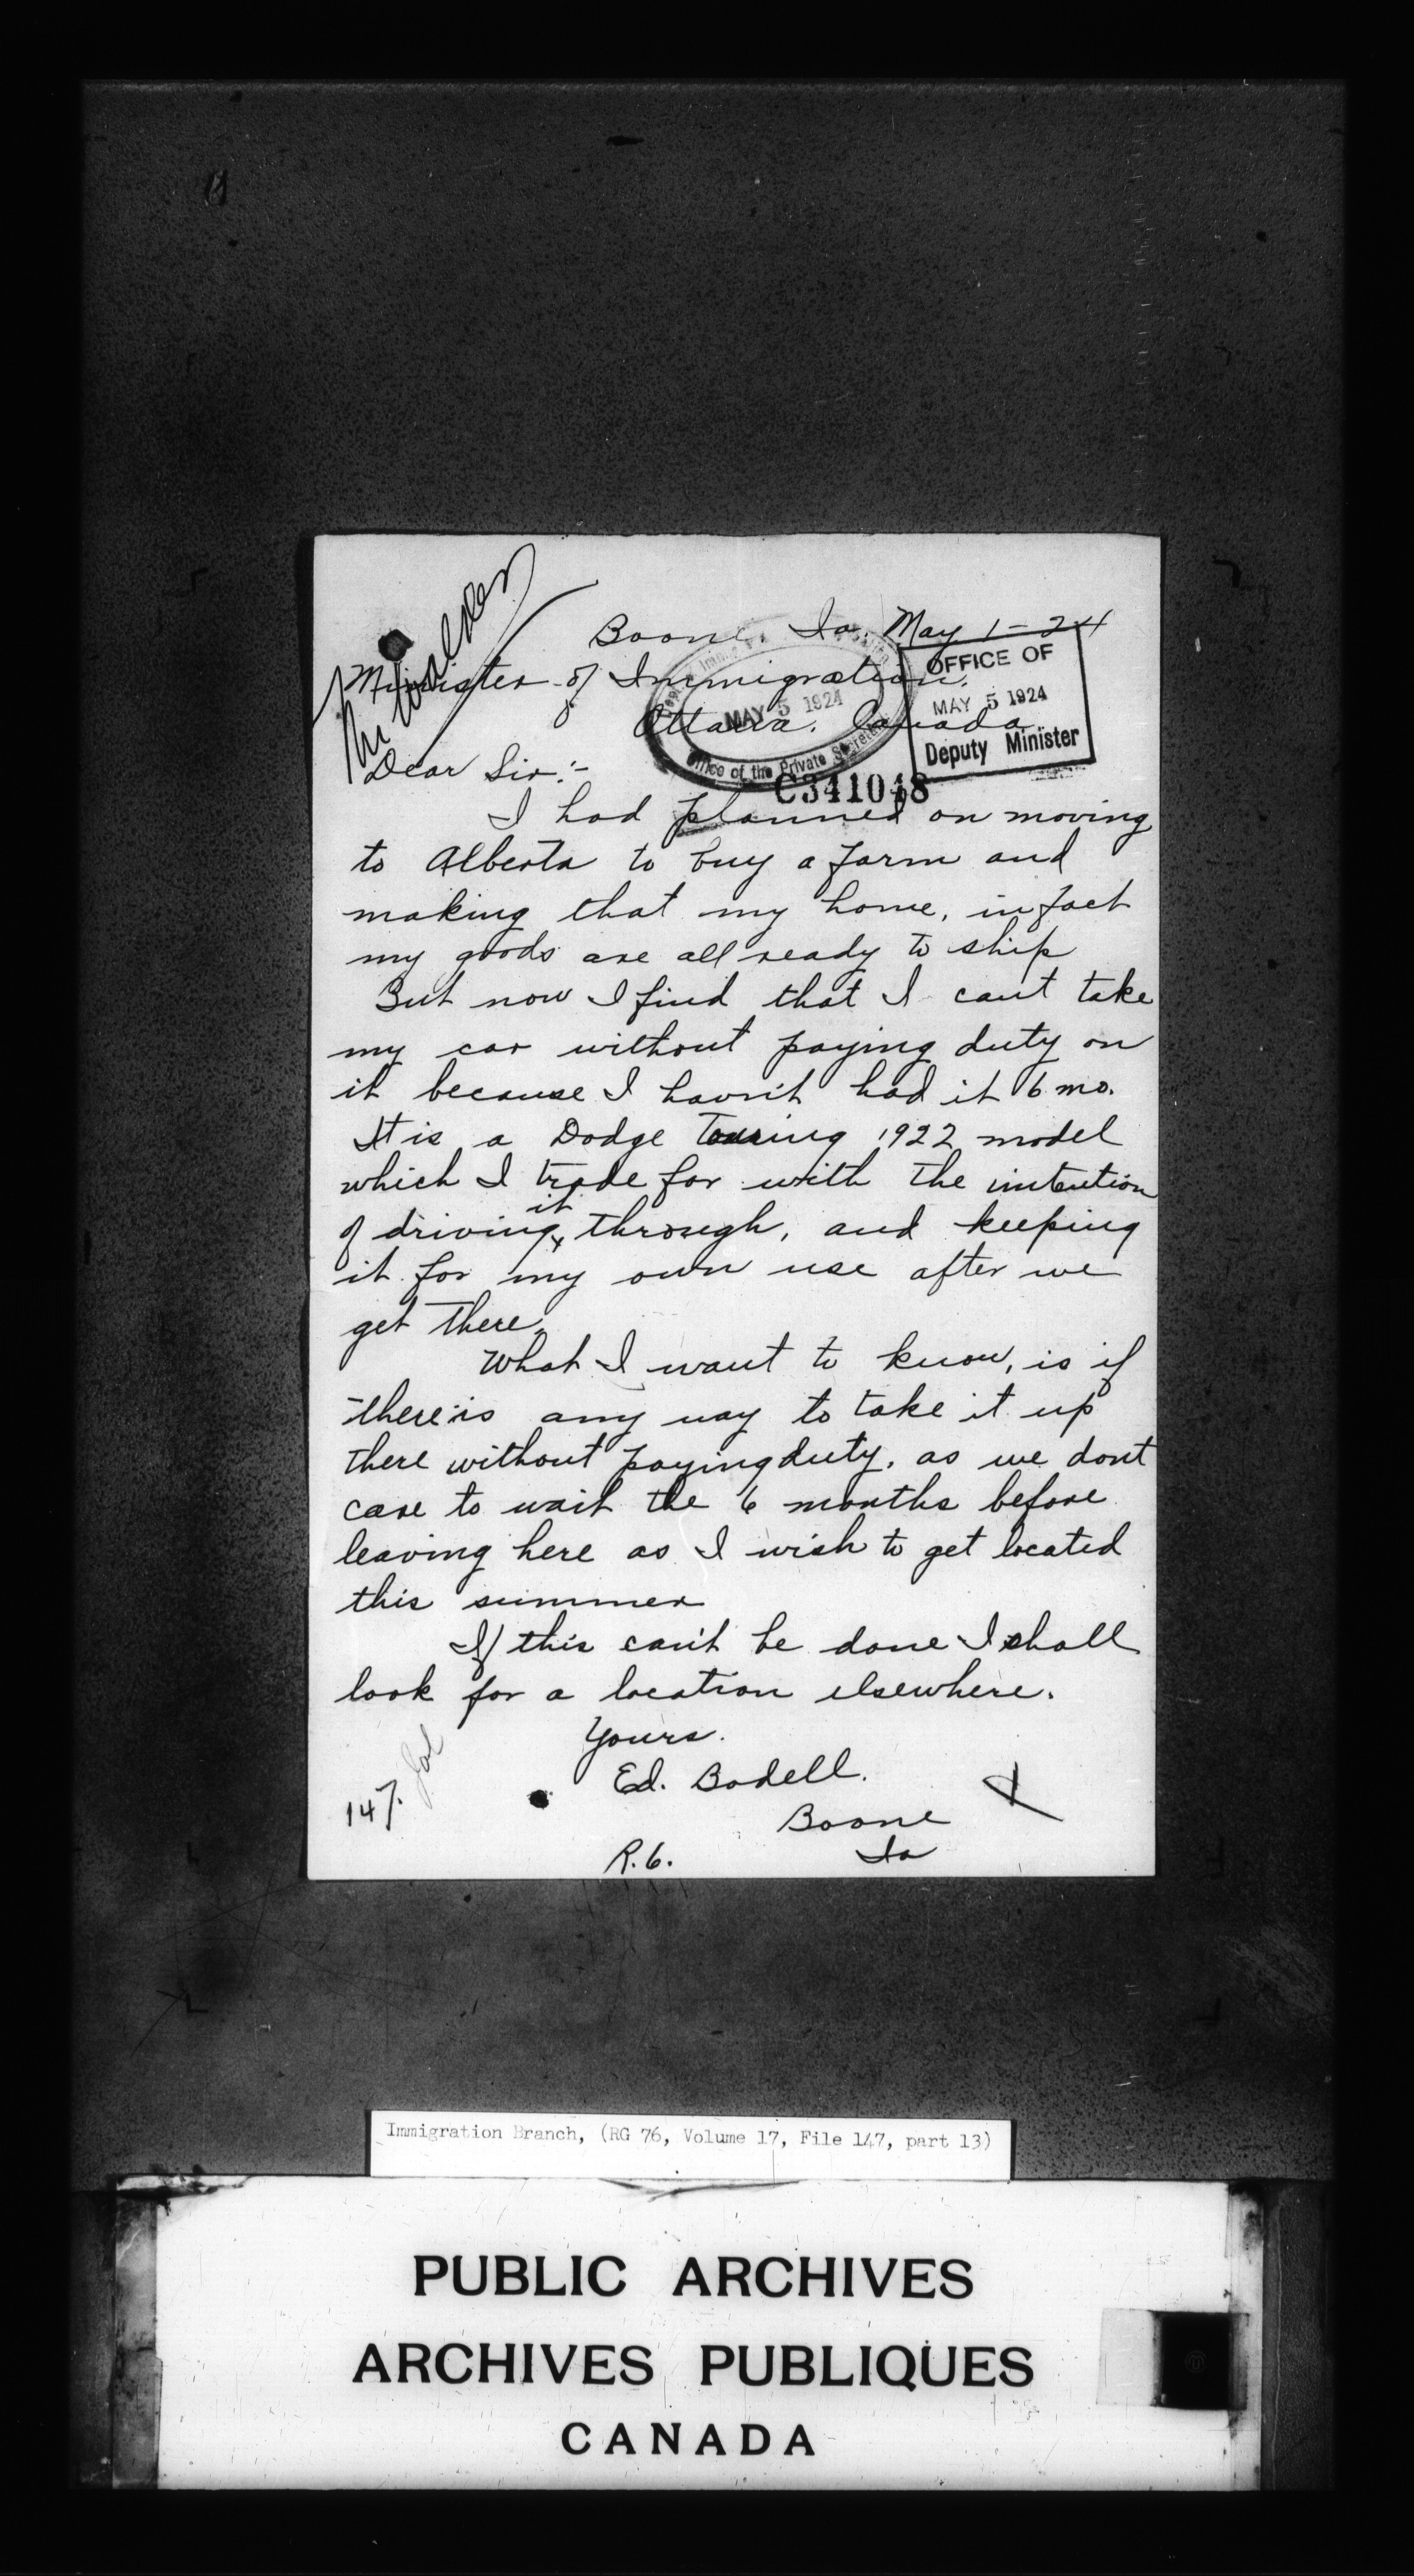 Boone, Ia. May 1-24
Minister of Immigration.
Ottawa. Canada
OFFICE OF
MAY 5 1924
Deputy Minister
MAY 5 1924
Office of the Private Secretary
Dear Sir:-
C341048
I had planned on moving
to Alberta to buy a farm and
making that my home, in fact
my goods are all ready to ship
But now I find that I cant take
my car without paying duty on
it because I havn't had it 6 mo.
It is a Dodge Touring 1922 model
which I trade for with the intention
of driving it through, and keeping
it for my own use after we
get there.
What I want to know, is if
there is any way to take it up
there without paying duty. as we dont
care to wait the 6 months before
leaving here as I wish to get located
this summer
If this can't be done I shall
look for a location elsewhere.
Yours.
Ed. Bodell.
Boone
Ia
R. 6.
147.
Immigration Branch, (RG 76, Volume 17, File 147, part 13)
PUBLIC ARCHIVES
ARCHIVES PUBLIQUES
CANADA